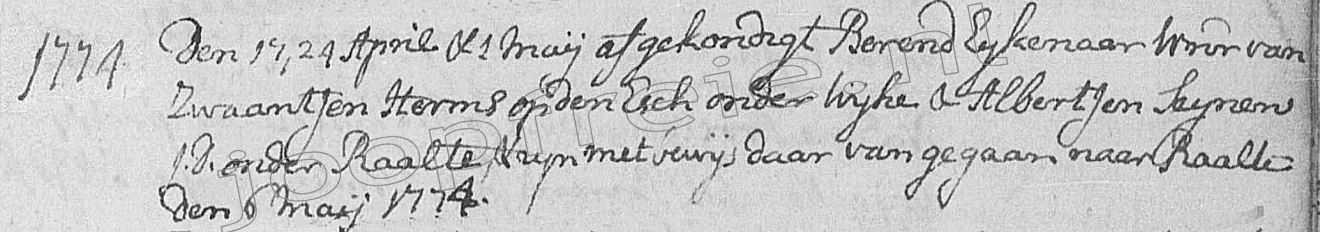 1774. Den 17, 24 April & 1 Maij afgekondigt Berend Eykenaar Wnr van
Zwaantjen Herms op den Esch onder Wyhe & Albertjen Seynen
J.D. onder Raalte, & zyn met bewijs daar van gegaan naar Raalte
Den 6 Maij 1774.
joopirreie.nl